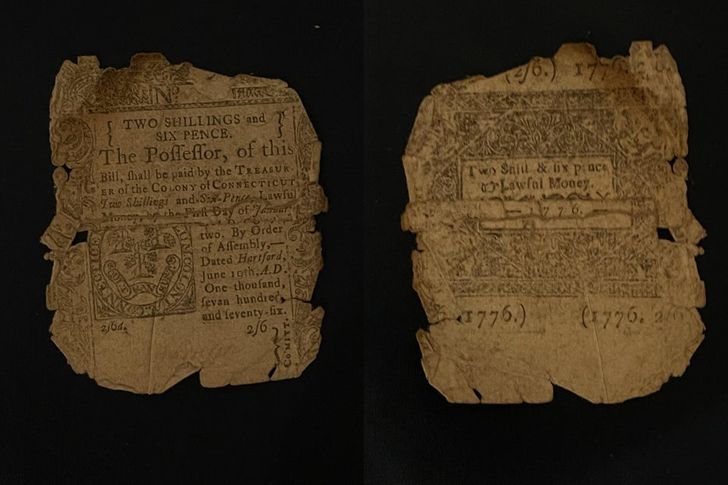 No
TWO SHILLINGS and
SIX PENCE.
The Poſſeſſor, of this
Bill, ſhall be paid by the TREASUR-
ER of the COLONY of CONNECTICUT
Two Shillings and Six-Pence Lawful
Money, by the Firſt Day of
two. By Order
of Aſſembly,—
Dated Hartford,
June 19th, A.D.
One thouſand,
ſevan hundred
and ſeventy-ſix.
2ſ6d. 2/6
COMITT.
(2/6.) 177
Two Shill & ſix pence
Lawful Money.
1776.
1776.) (1776. 2/6